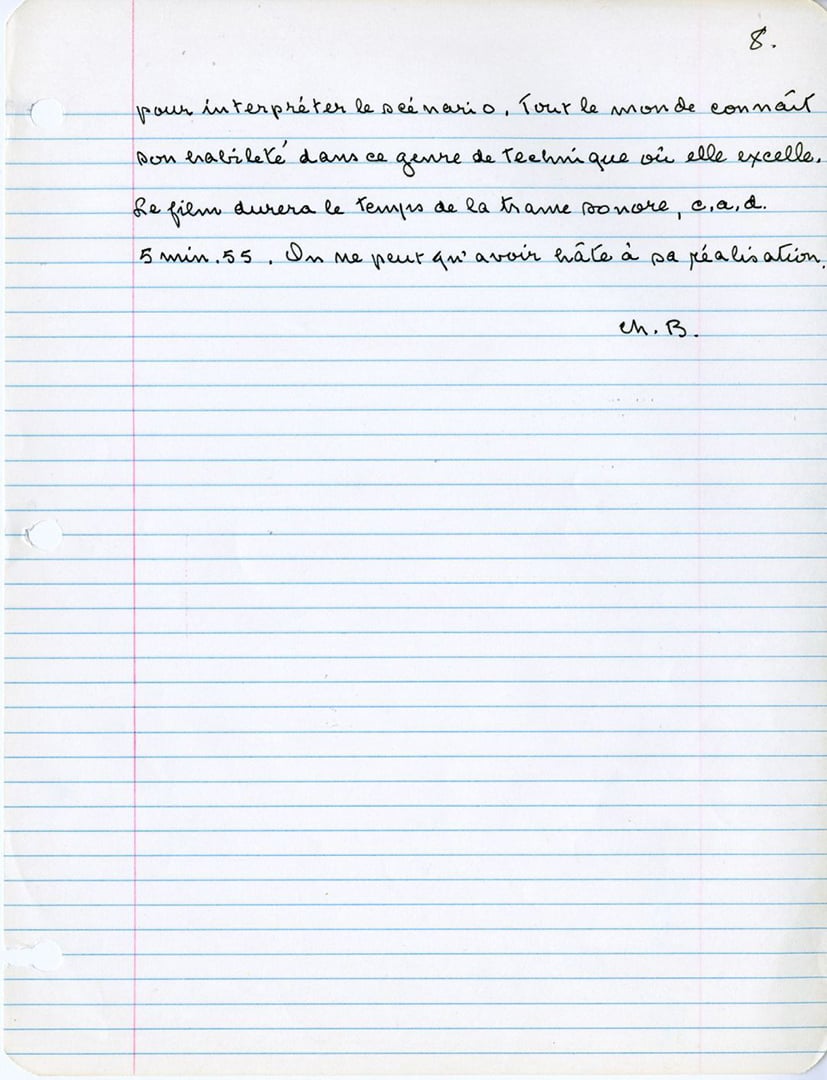 8.
pour interpréter le scénario. Tout le monde connaît
son habileté dans ce genre de technique où elle excelle.
Le film durera le temps de la trame sonore, c.a.d.
5 min. 55. On ne peut qu'avoir hâte à sa réalisation.
Ch. B.